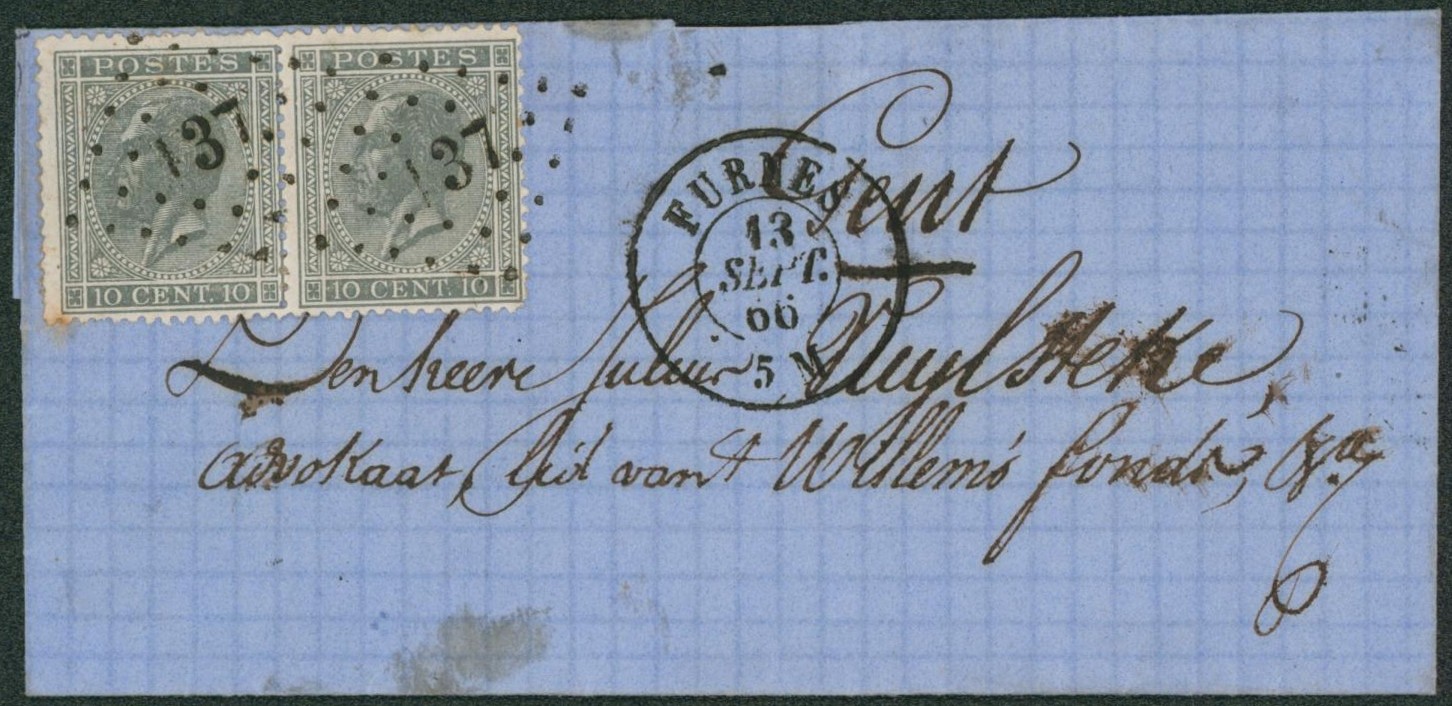 POSTES POSTES
137 137
10 CENT. 10 10 CENT. 10
FURNES
13
SEPT.
66
5 M
Gent
Den heere Julius Vuylsteke,
advokaat, lid van t Willems fonds, &a